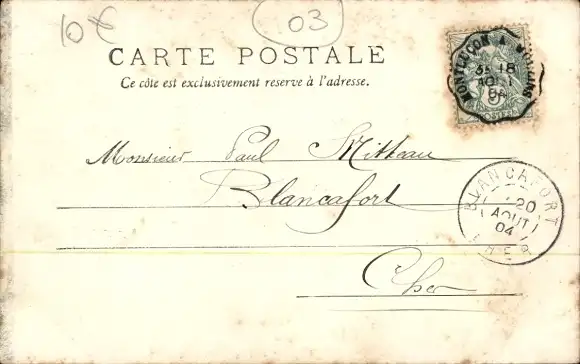 10 €
03
CARTE POSTALE
Ce côté est exclusivement reservé à l'adresse.
MONTLUÇON A MOULINS
18
AOUT
Monsieur Paul Mitteau
Blancafort
Cher
BLANCAFORT
20
AOUT
04
CHER